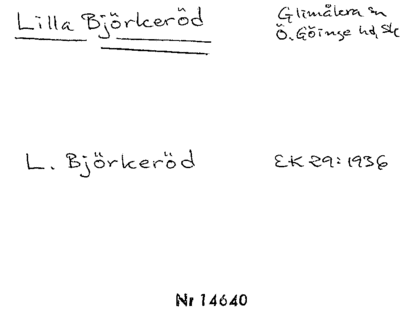 Lilla Björkeröd
Glimåkra sn
Ö. Göinge hd, Sk
L. Björkeröd
EK 29:1936
Nr 14640